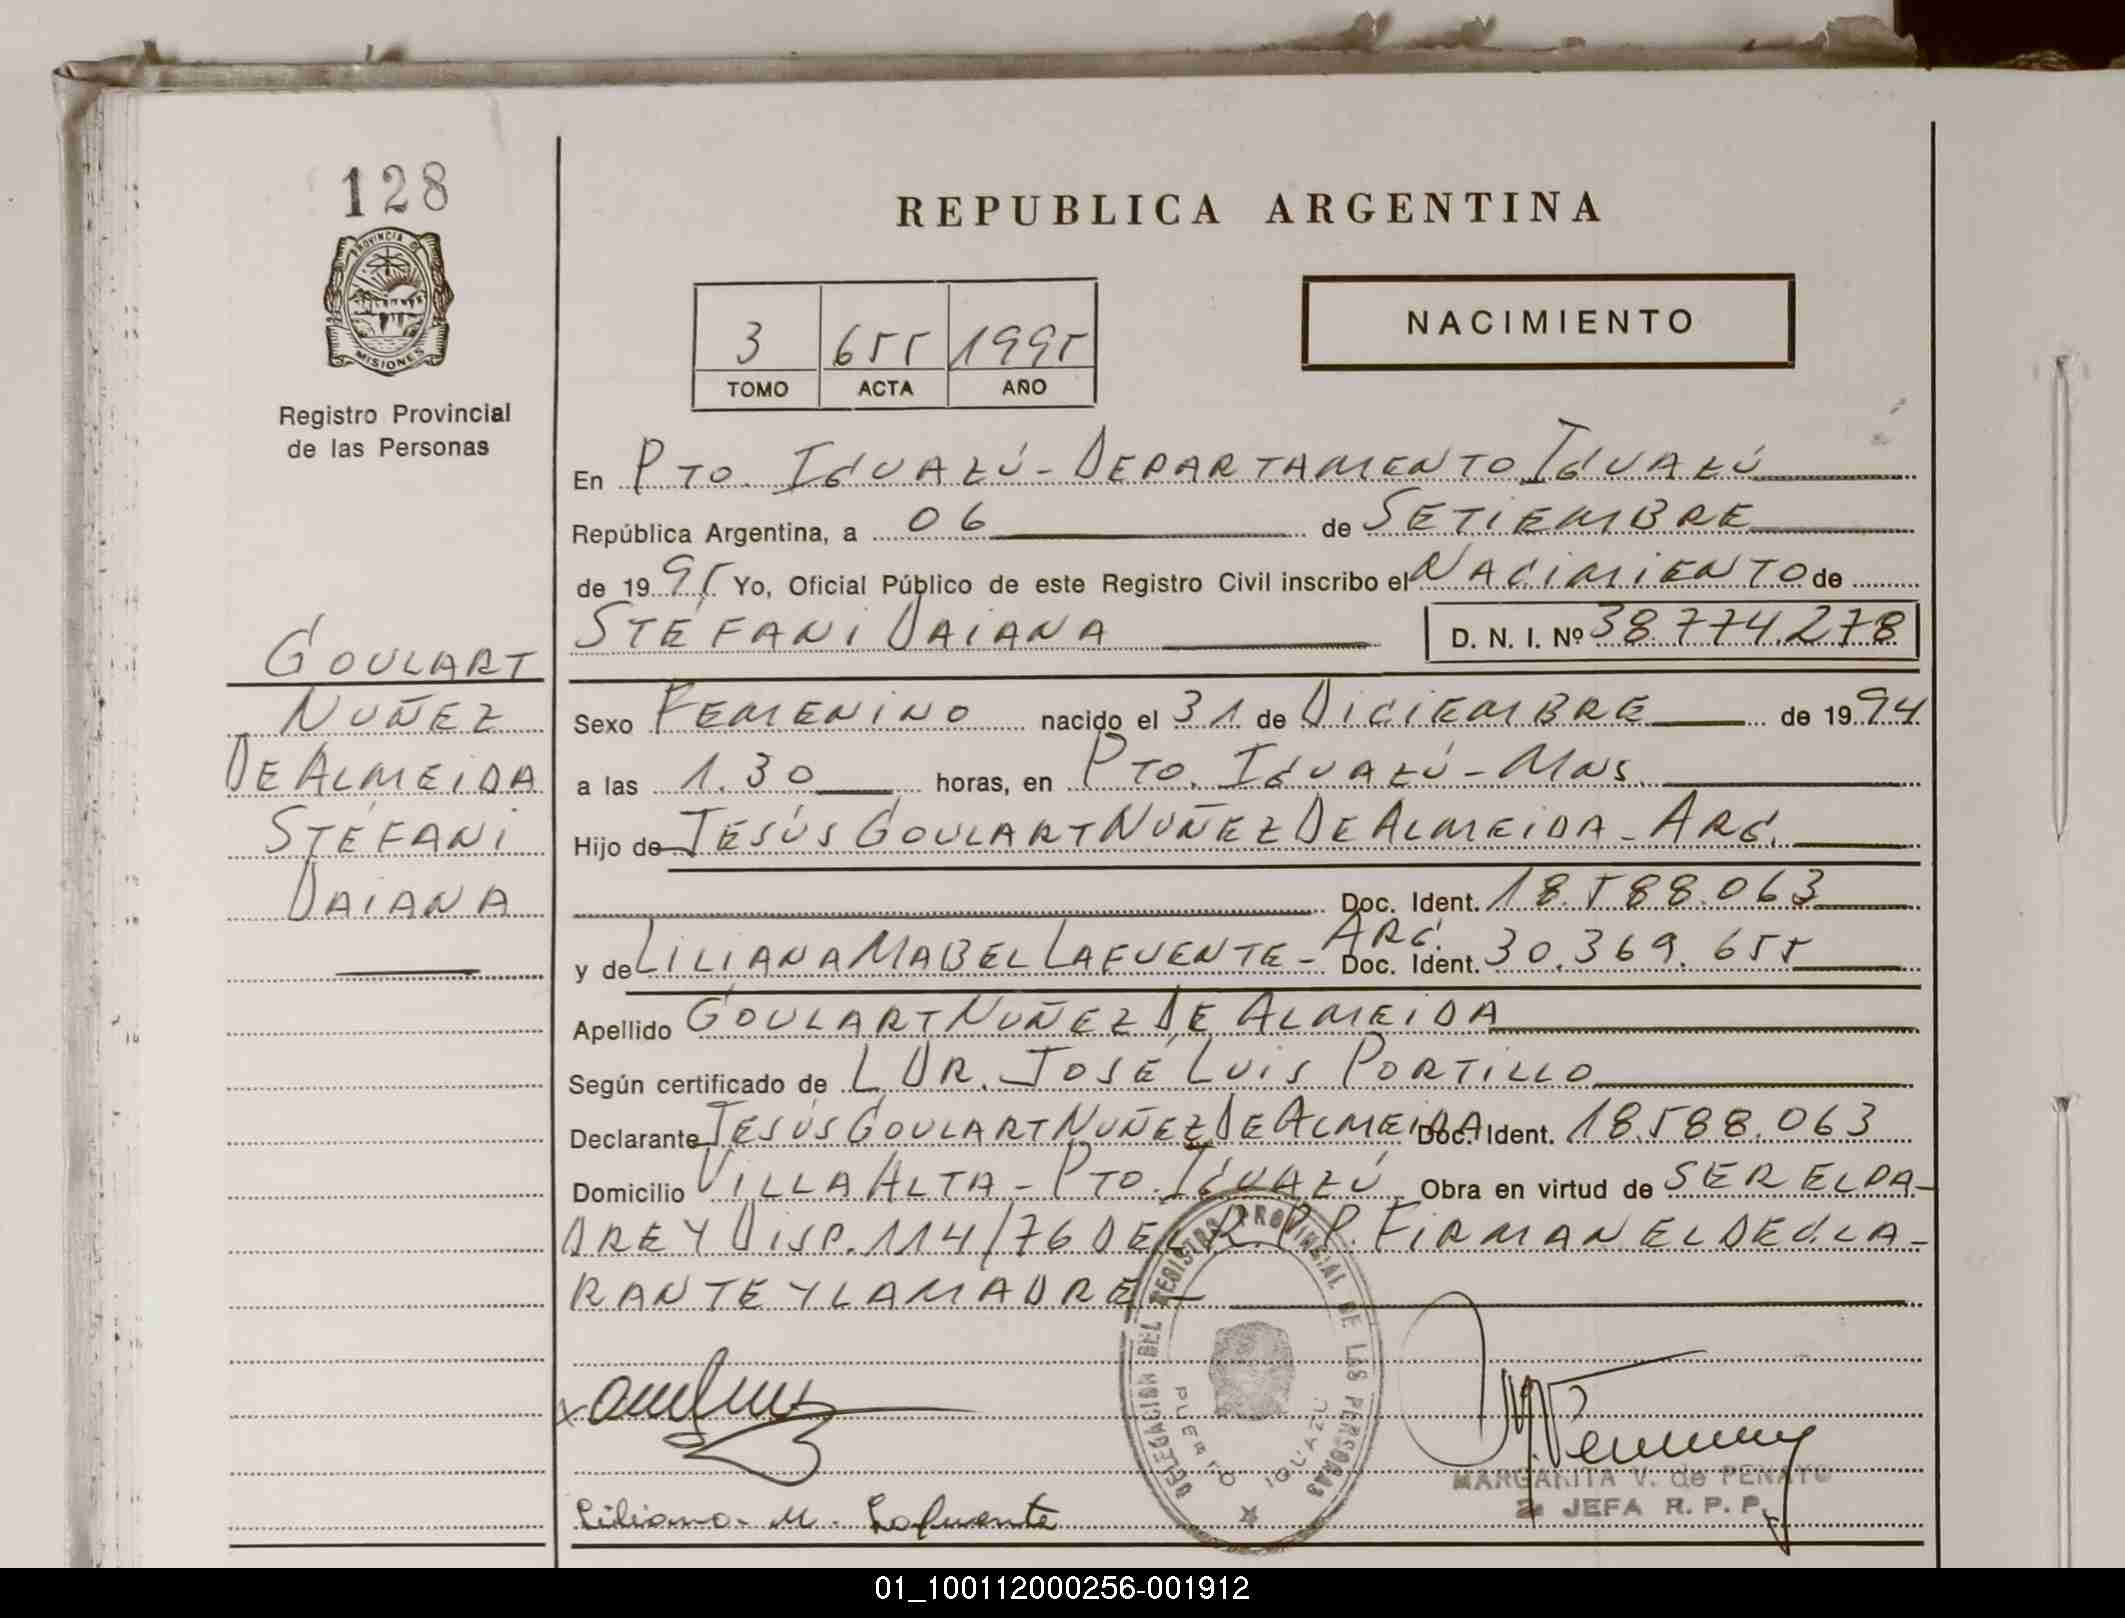 128
PROVINCIA DE
MISIONES
Registro Provincial
de las Personas
GOULART
NUÑEZ
DE ALMEIDA
STÉFANI
DAIANA
REPUBLICA ARGENTINA
3 655 1995
TOMO ACTA AÑO
NACIMIENTO
En PTO. IGUAZÚ - DEPARTAMENTO IGUAZÚ
República Argentina, a 06 de SETIEMBRE
de 1995 Yo, Oficial Público de este Registro Civil inscribo el NACIMIENTO de
STÉFANI DAIANA D. N. I. Nº 38.774.278
Sexo FEMENINO nacido el 31 de DICIEMBRE de 1994
a las 1.30 horas, en PTO. IGUAZÚ - MNS.
Hijo de JESÚS GOULART NUÑEZ DE ALMEIDA - ARG.
Doc. Ident. 18.588.063
y de LILIANA MABEL LAFUENTE - ARG. Doc. Ident. 30.369.655
Apellido GOULART NUÑEZ DE ALMEIDA
Según certificado de L DR. JOSÉ LUIS PORTILLO
Declarante JESÚS GOULART NUÑEZ DE ALMEIDA Doc. Ident. 18.588.063
Domicilio VILLA ALTA - PTO. IGUAZÚ Obra en virtud de SER EL PA-
DRE Y DISP. 114/76 DEL R.P.P. FIRMAN EL DECLA-
RANTE Y LA MADRE -
DELEGACION DEL REGISTRO PROVINCIAL DE LAS PERSONAS
PUERTO IGUAZU
Liliana M. Lafuente
MARGARITA V. de PENAYO
JEFA R. P. P.
01_100112000256-001912